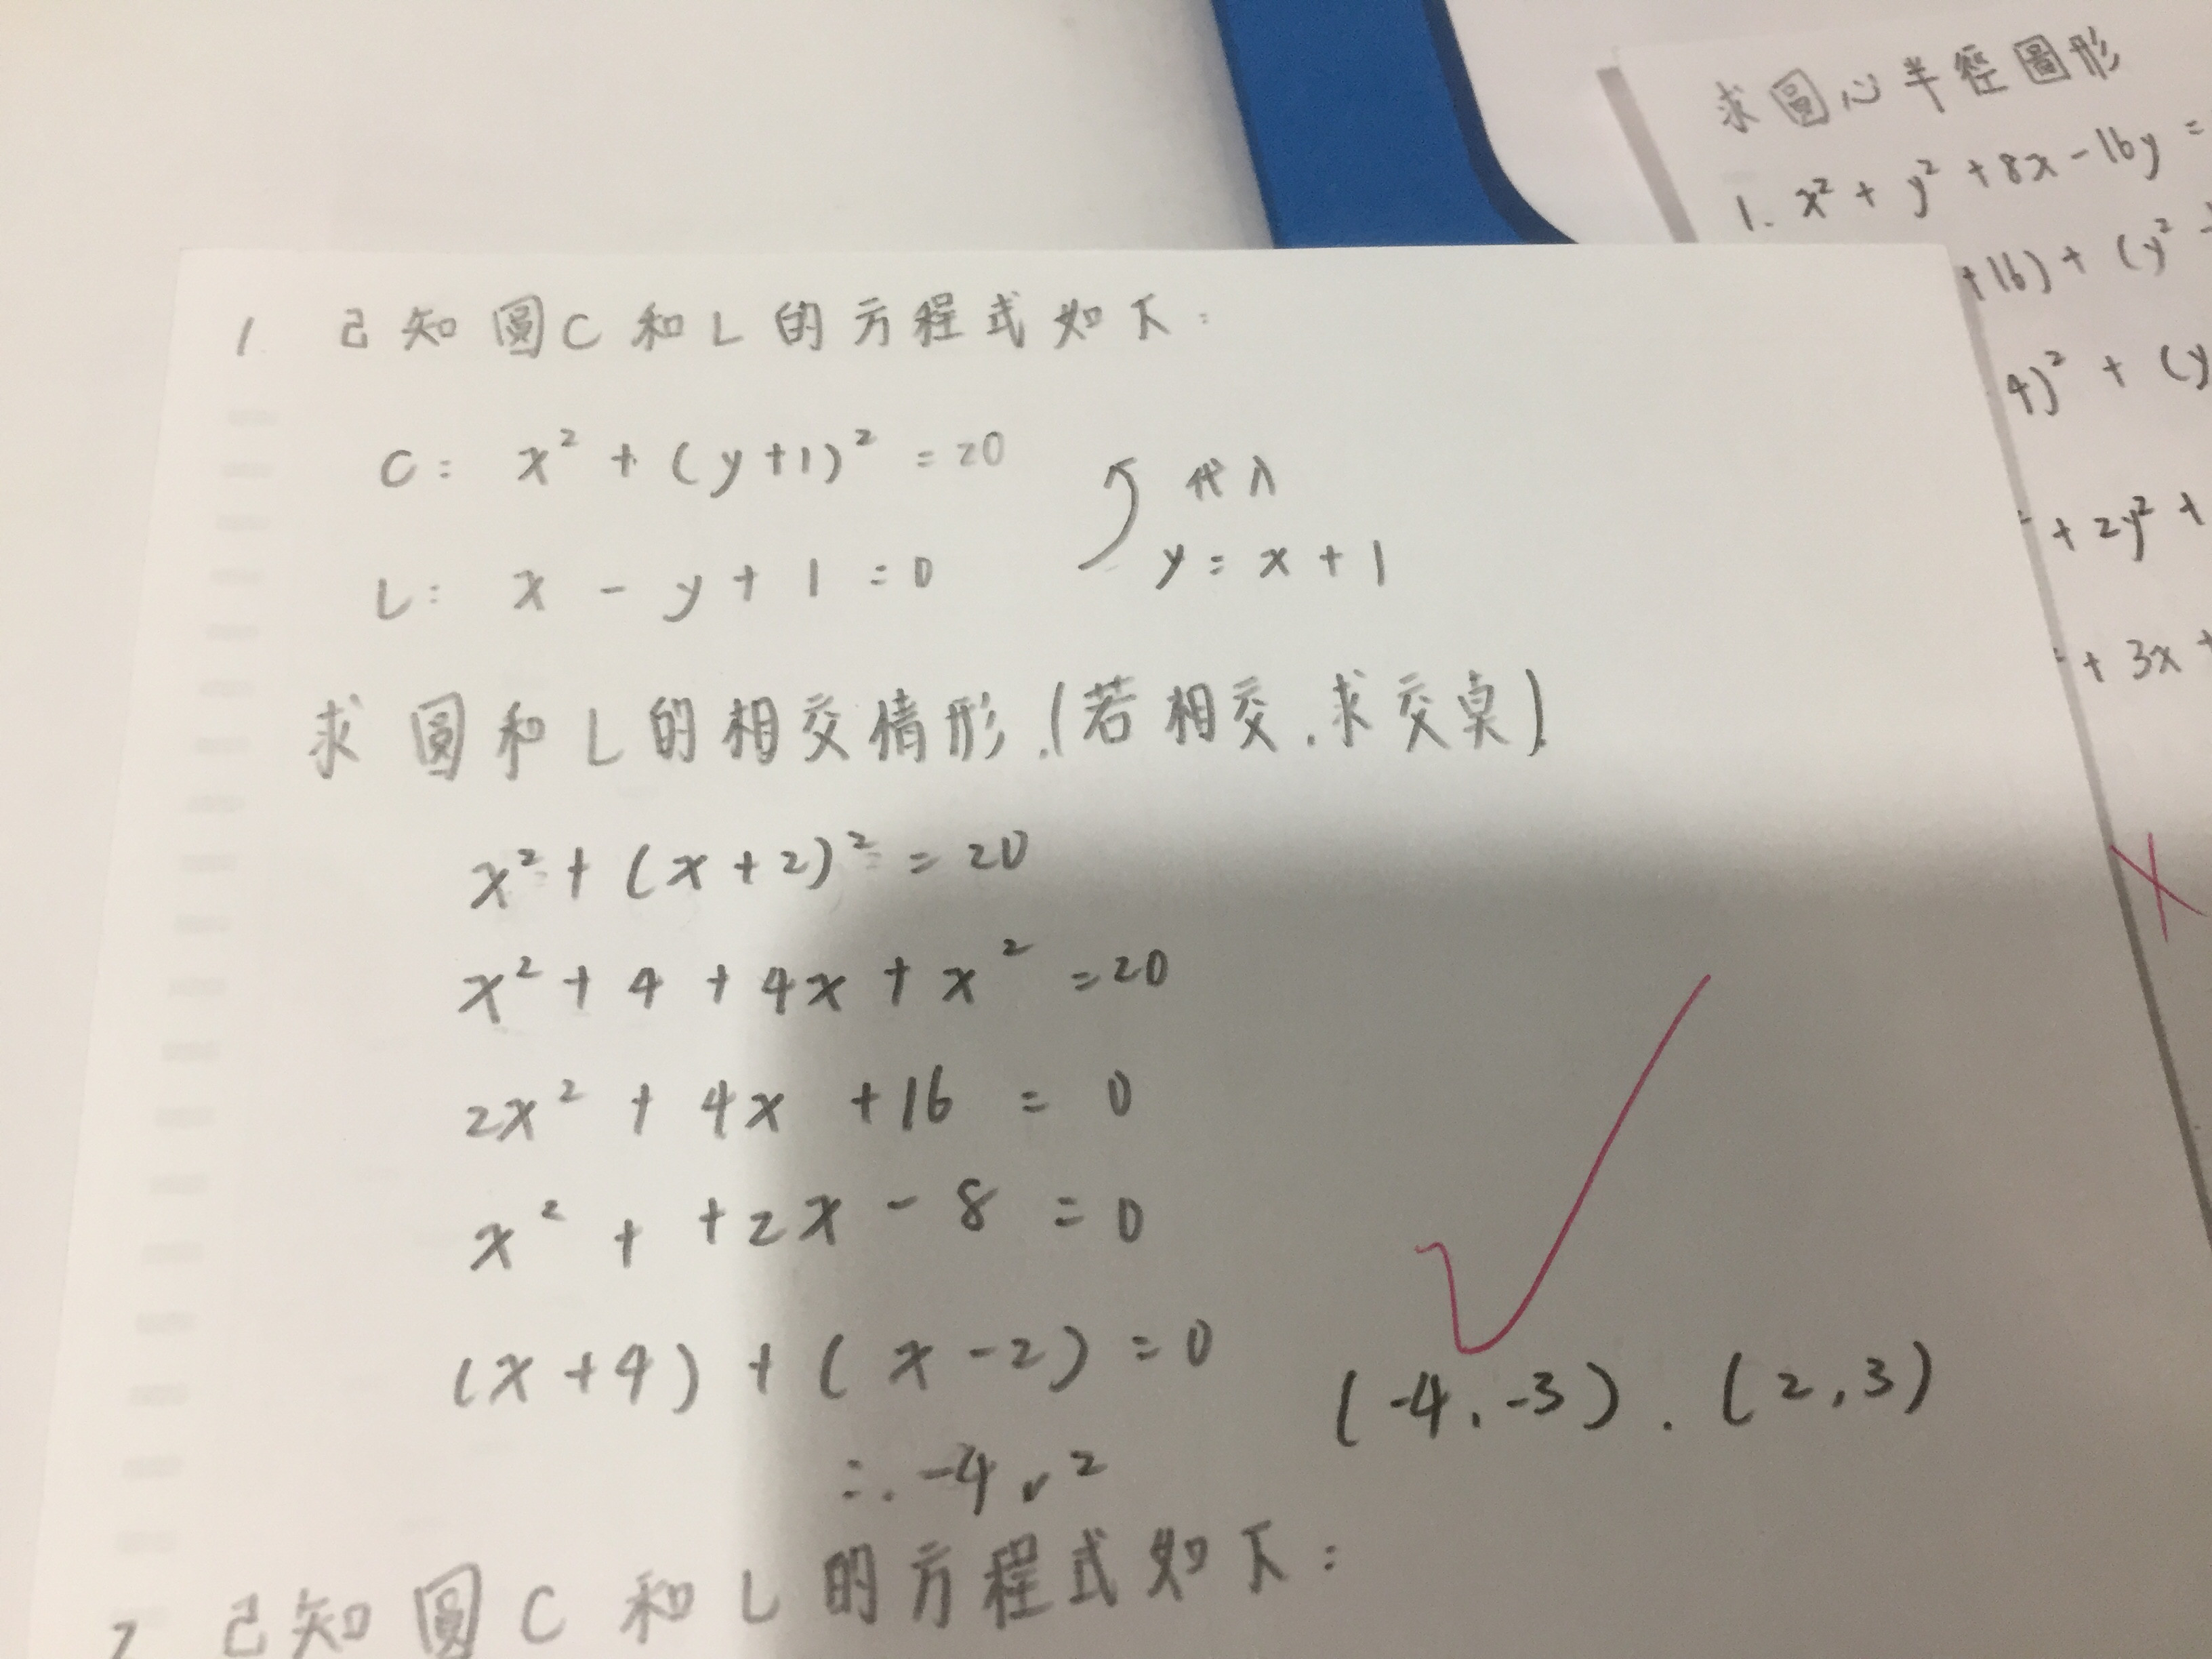 求圓心半徑圖形
1. x² + y² + 8x - 16y =
+16) + (y²
4)² + (y
+ 2y² +
+ 3x +
1. 已知圓C和L的方程式如下:
C: x² + (y+1)² = 20
代入
L: x - y + 1 = 0
y = x + 1
求圓和L的相交情形.(若相交.求交點)
x² + (x+2)² = 20
x² + 4 + 4x + x² = 20
2x² + 4x + 16 = 0
x² + +2x - 8 = 0
(x+4) + (x-2) = 0
(-4,-3). (2,3)
∴ -4, 2
2 已知圓C和L的方程式如下: